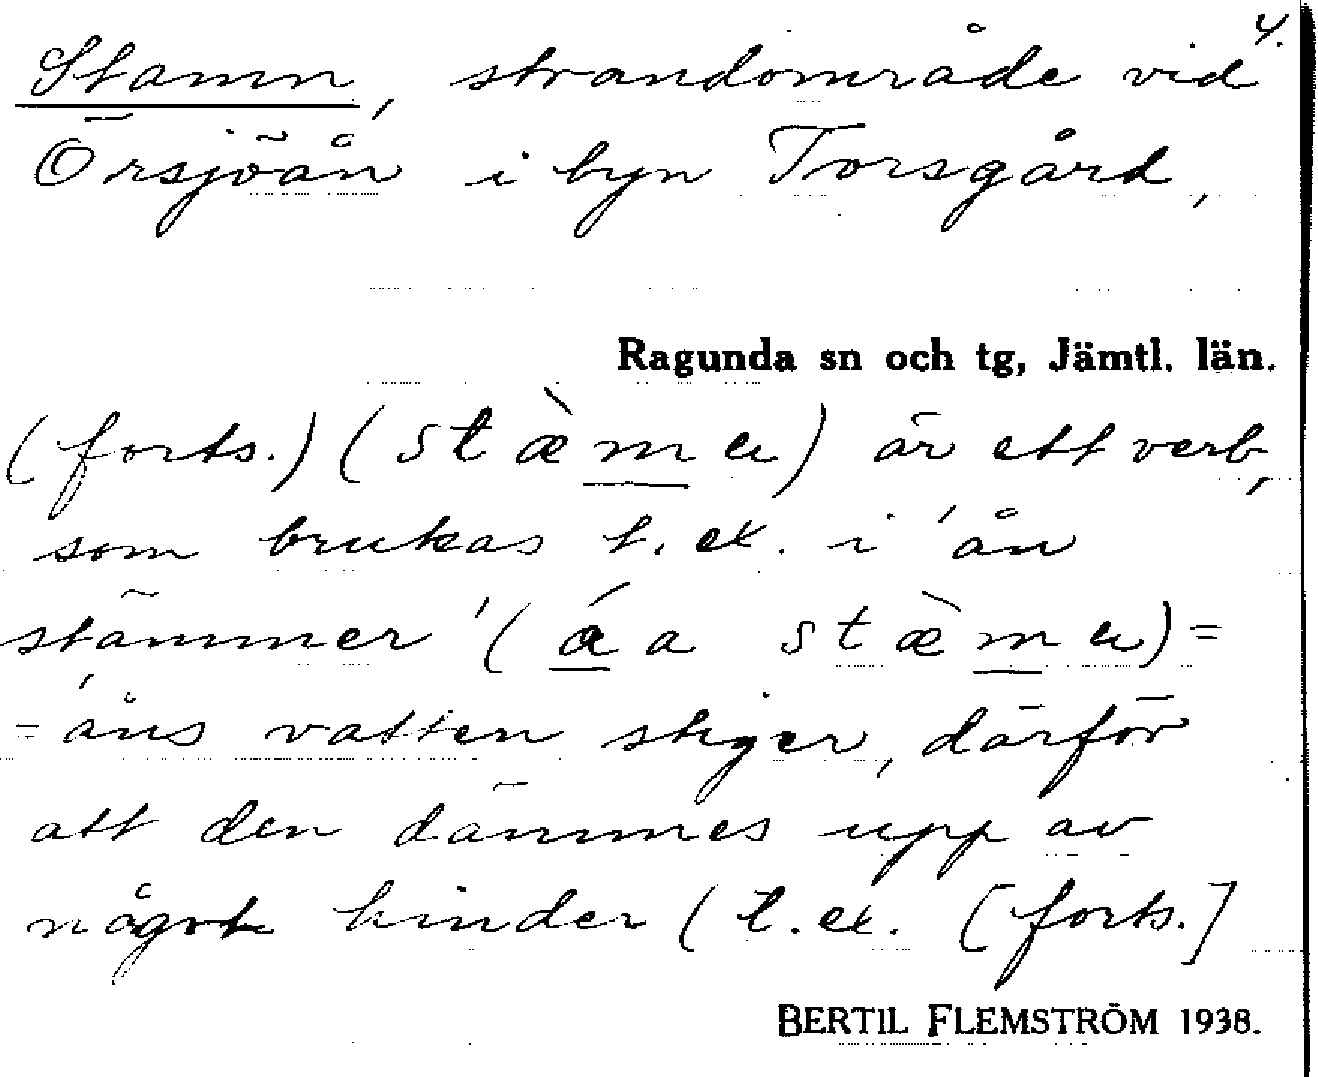 4.
Stamn, strandområde vid
Örsjöån i byn Torsgård,
Ragunda sn och tg, Jämtl. län.
(forts.) (stæ̀mɐ) är ett verb,
som brukas t. ex. i 'ån
stämmer' (áa stæ̀mɐ) =
= åns vatten stiger, därför
att den dämmes upp av
något hinder (t. ex. [forts.]
BERTIL FLEMSTRÖM 1938.